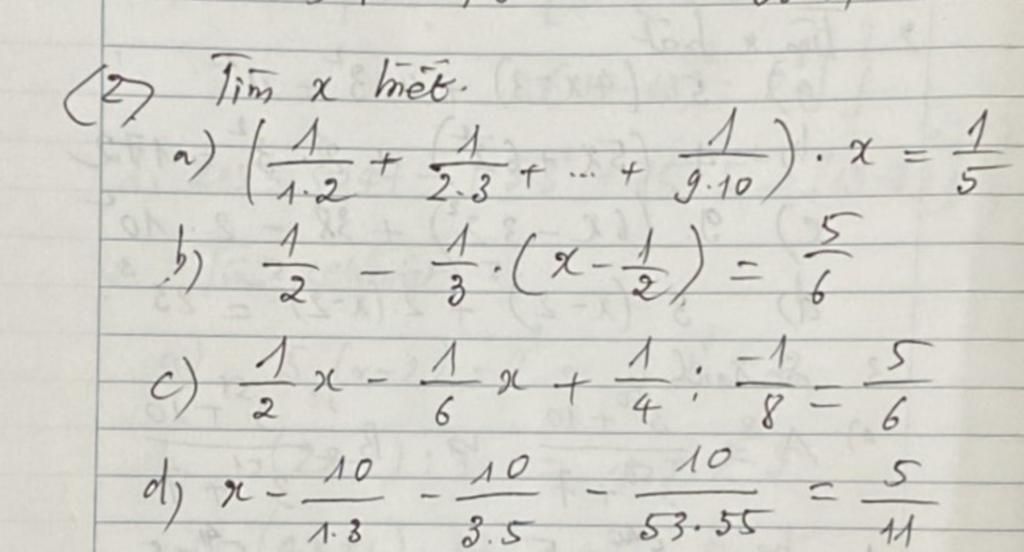 (2) Tìm x biết.
a) (1/1·2 + 1/2·3 + ... + 1/9·10) · x = 1/5
b) 1/2 - 1/3 · (x - 1/2) = 5/6
c) 1/2 x - 1/6 x + 1/4 : -1/8 = 5/6
d) x - 10/1·3 - 10/3·5 - 10/53·55 = 5/11